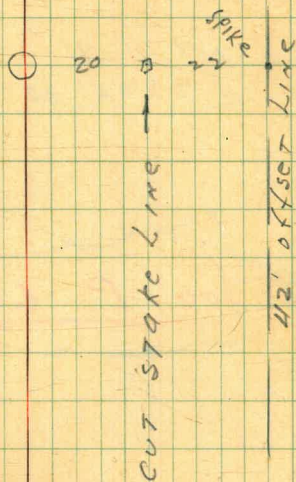 SPIKE
20 22
CUT STAKE LINE
42' offset LINE